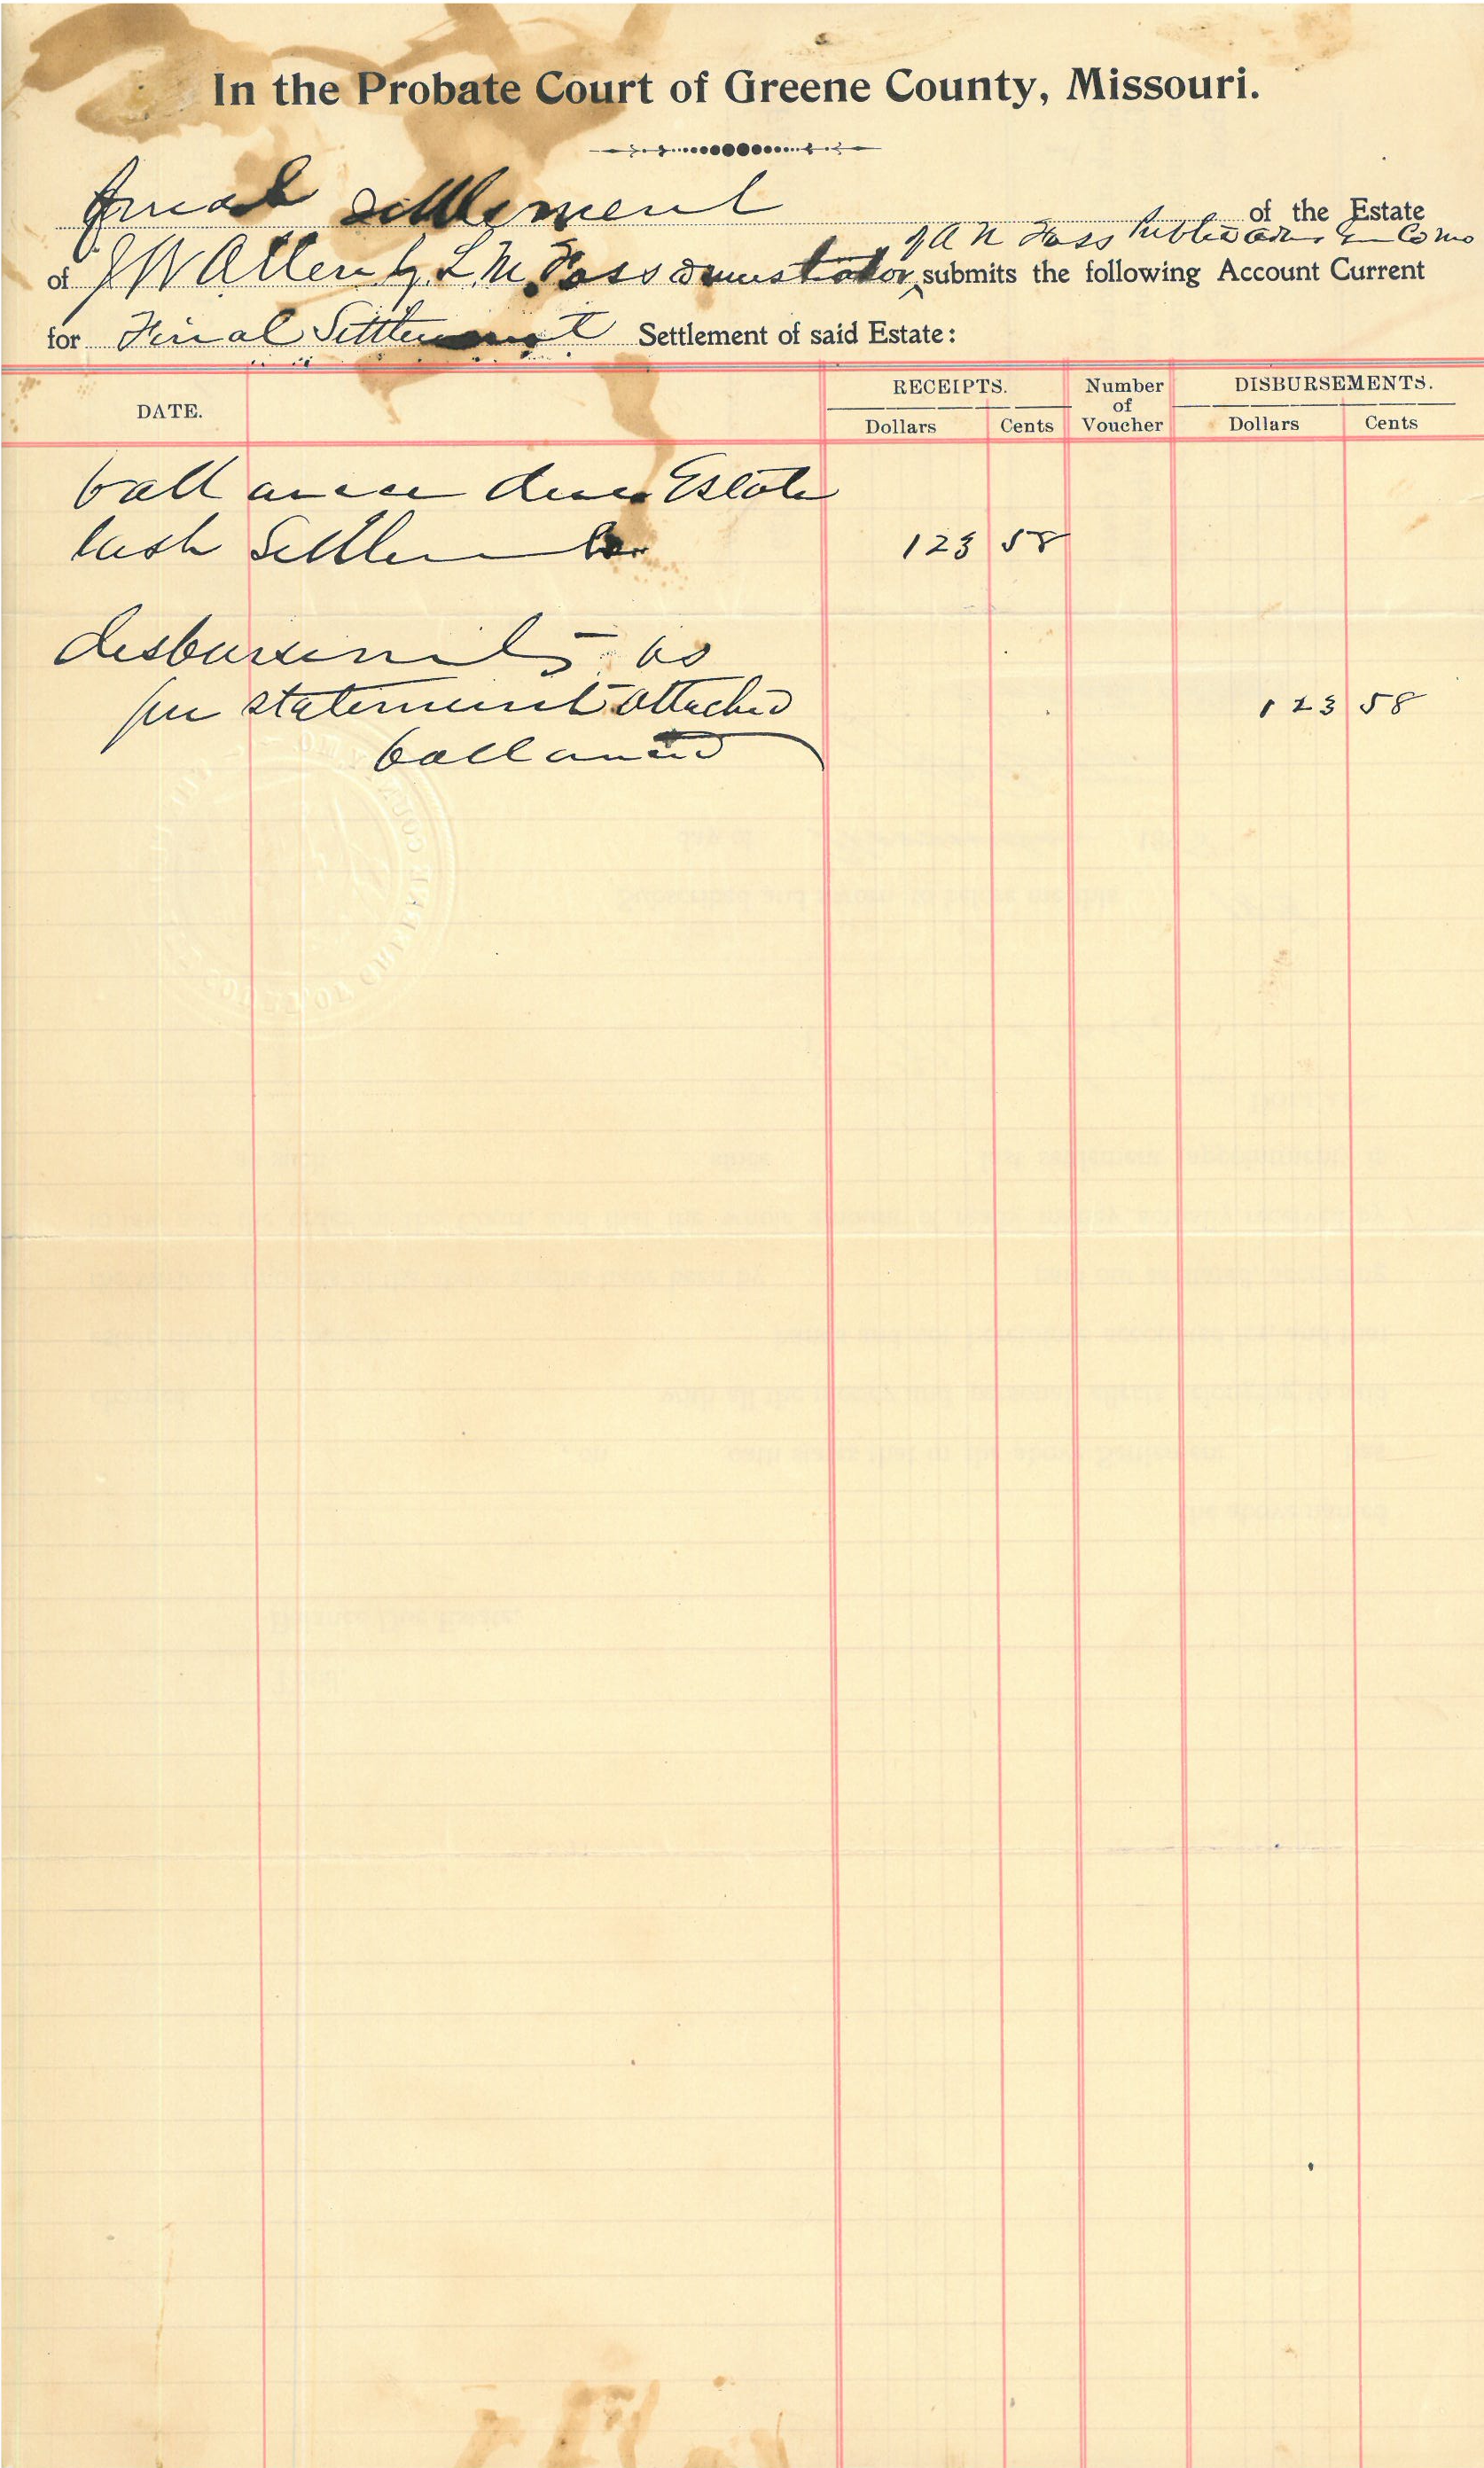 In the Probate Court of Greene County, Missouri.
final settlement of the Estate
of A N Foss Public Adm Gr Co Mo
of J W Allen by L. M. Foss administrator submits the following Account Current
for Final Settlement Settlement of said Estate:
DATE. RECEIPTS. Number of Voucher DISBURSEMENTS.
Dollars Cents Dollars Cents
ballance due Estate
last Settlement 123 58
disbursements as
per statement attached 123 58
ballanced